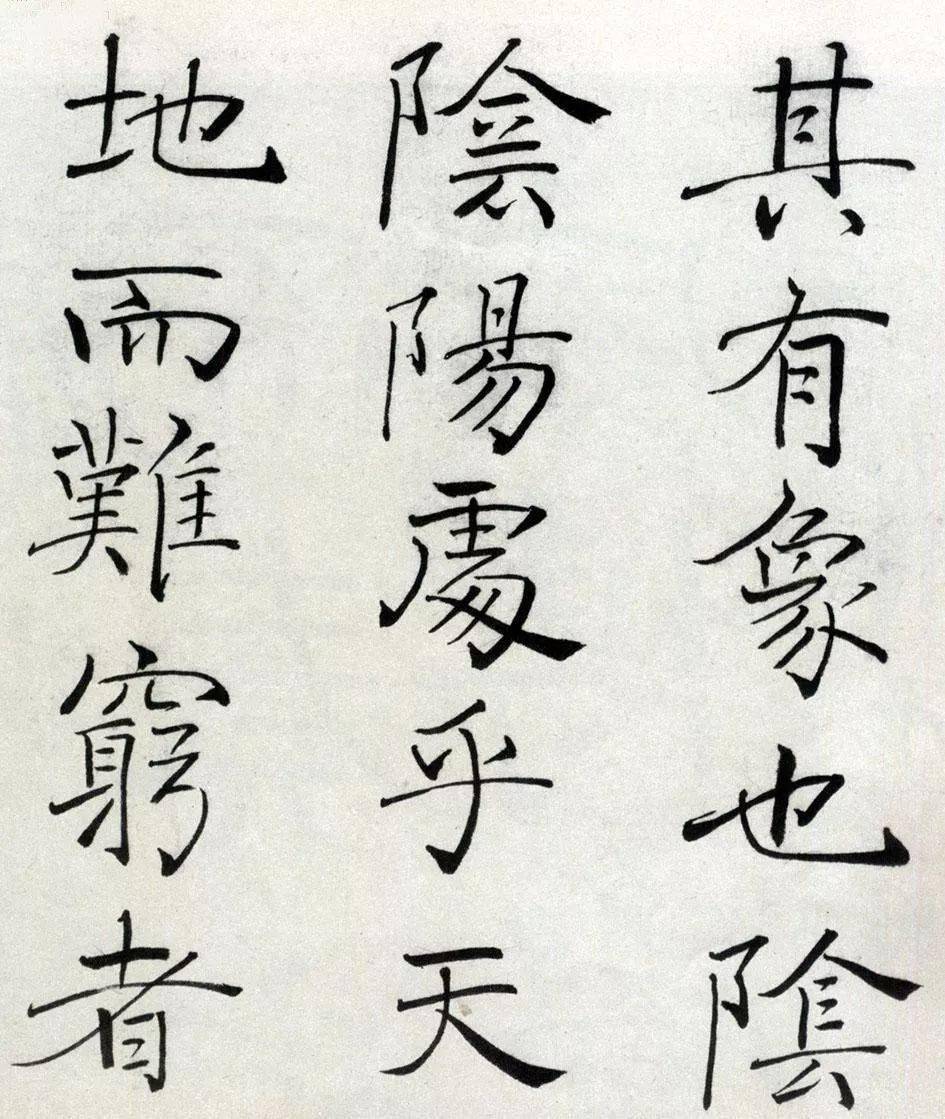 其有象也陰
陰陽處乎天
地而難窮者